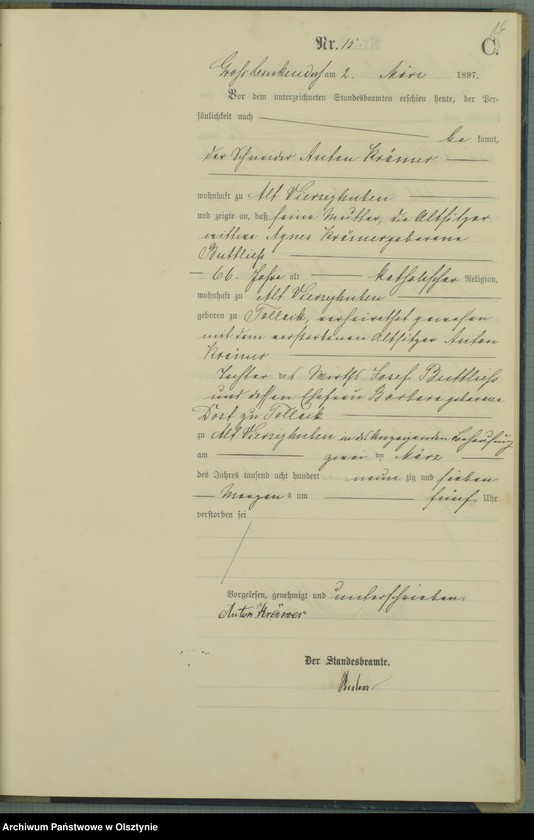 Nr. 15
C.
Groß Lemkendorf am 2. März 1897.
Vor dem unterzeichneten Standesbeamten erschien heute, der Per-
sönlichkeit nach
be kannt,
der Schneider Anton Krämer
wohnhaft zu Alt Vierzighuben
und zeigte an, daß seine Mutter, die Altsitzer
wittwe Agnes Krämer geborene
Buttließ
66 Jahre alt katholischer Religion,
wohnhaft zu Alt Vierzighuben
geboren zu Tollack, verheirathet gewesen
mit dem verstorbenen Altsitzer Anton
Krämer
Tochter des Wirths Josef Buttließ
und dessen Ehefrau Barbara geborene
Dost zu Tollack
zu Alt Vierzighuben in des Anzeigenden Behausung
am zwei ten März
des Jahres tausend acht hundert neun zig und sieben
Morgens um fünf Uhr
verstorben sei
Vorgelesen, genehmigt und unterschrieben.
Anton Krämer
Der Standesbeamte.
Archiwum Państwowe w Olsztynie